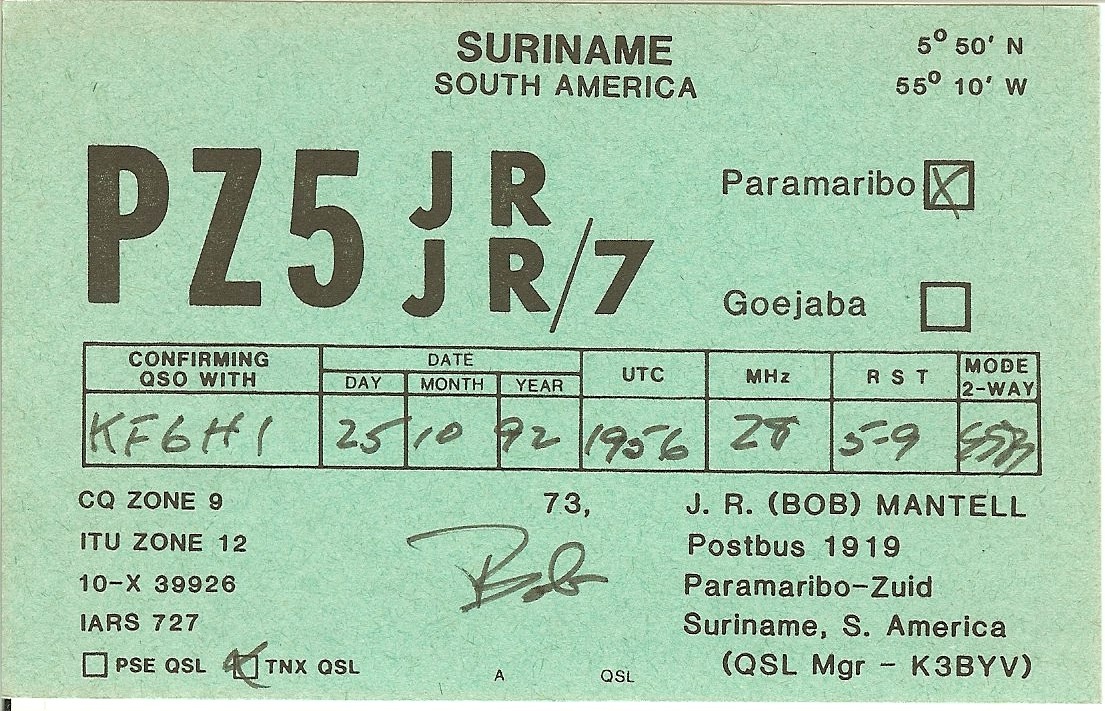 SURINAME
SOUTH AMERICA
5° 50' N
55° 10' W
PZ5 JR
JR/7
Paramaribo X
Goejaba
CONFIRMING QSO WITH DATE UTC MHz R S T MODE 2-WAY
DAY MONTH YEAR
KF6HI 25 10 92 1956 28 5-9 SSB
CQ ZONE 9
ITU ZONE 12
10-X 39926
IARS 727
PSE QSL X TNX QSL
73,
Bob
A QSL
J. R. (BOB) MANTELL
Postbus 1919
Paramaribo-Zuid
Suriname, S. America
(QSL Mgr - K3BYV)